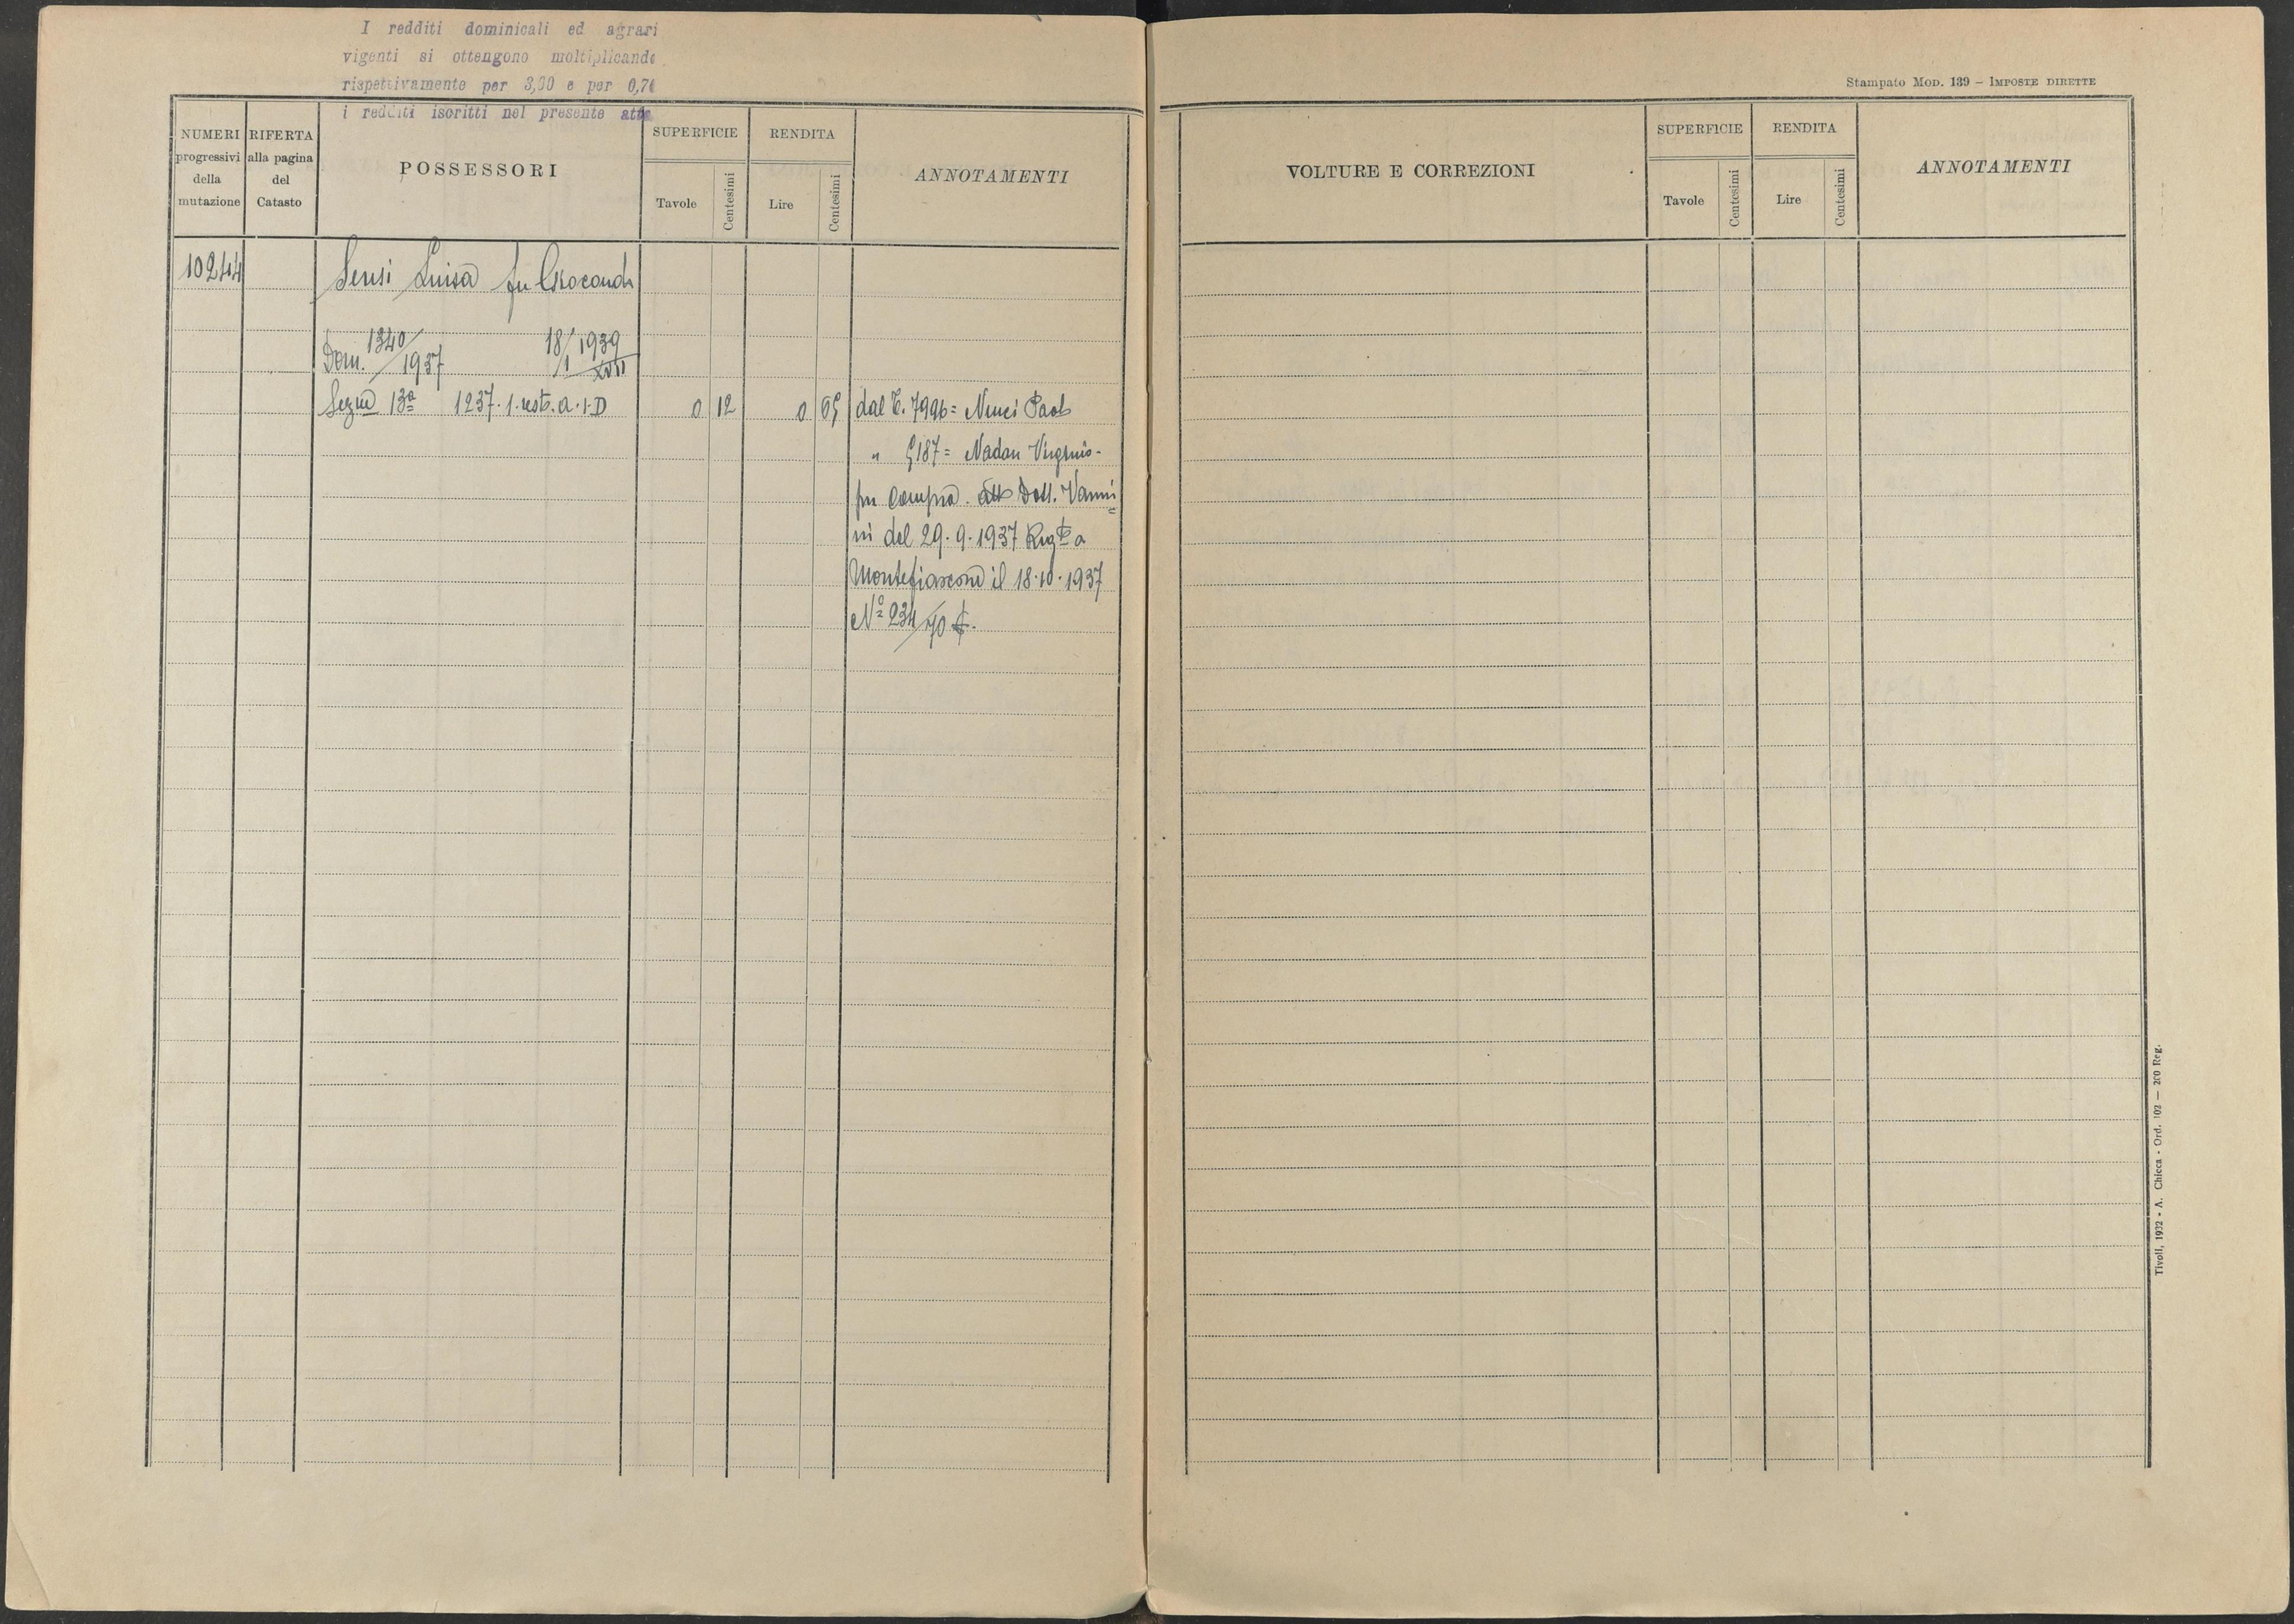 I redditi dominicali ed agrari
vigenti si ottengono moltiplicando
rispettivamente per 3,30 e per 0,70
i redditi iscritti nel presente atto
NUMERI
progressivi
della
mutazione
RIFERTA
alla pagina
del
Catasto
POSSESSORI
SUPERFICIE
Tavole
Centesimi
RENDITA
Lire
Centesimi
ANNOTAMENTI
10244
Sensi Luisa fu
Dom. 1340/1937 18/1 1939 XVII
Sezne 13ª 1237.1.rest.a.1.D 0 12 0 05 dal T. 7996 = Nenci Paolo
" 5187 = Nadan Virginio-
per Compra. atto Dott. Vanni=
ni del 29.9.1937 Regto a
Montefiascone il 18.10.1937
Nº 234/70
Stampato MOD. 139 – IMPOSTE DIRETTE
VOLTURE E CORREZIONI
SUPERFICIE
Tavole
Centesimi
RENDITA
Lire
Centesimi
ANNOTAMENTI
Tivoli, 1932 - A. Chicca - Ord. 102 — 200 Reg.